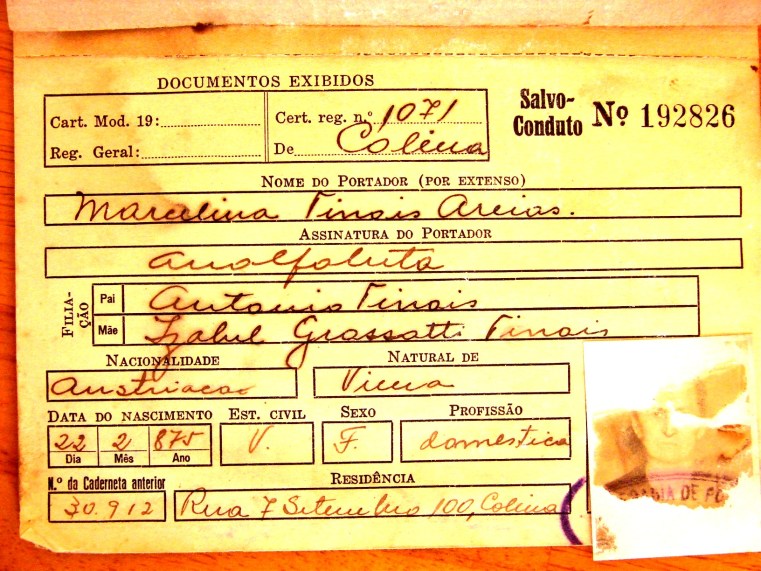 DOCUMENTOS EXIBIDOS
Cart. Mod. 19:
Reg. Geral:
Cert. reg. n.º 1071
De Colina
Salvo-
Conduto Nº 192826
NOME DO PORTADOR (POR EXTENSO)
Marcelina Tinais Areias.
ASSINATURA DO PORTADOR
analfabeta
FILIA-
ÇÃO
Pai Antonio Tinais
Mãe Izabel Grassatti Tinais
NACIONALIDADE NATURAL DE
Austriaca Viena
DATA DO NASCIMENTO EST. CIVIL SEXO PROFISSÃO
22 2 875 V. F. domestica
Dia Mês Ano
N.º da Caderneta anterior RESIDÊNCIA
30.912 Rua 7 Setembro 100, Colina
DE